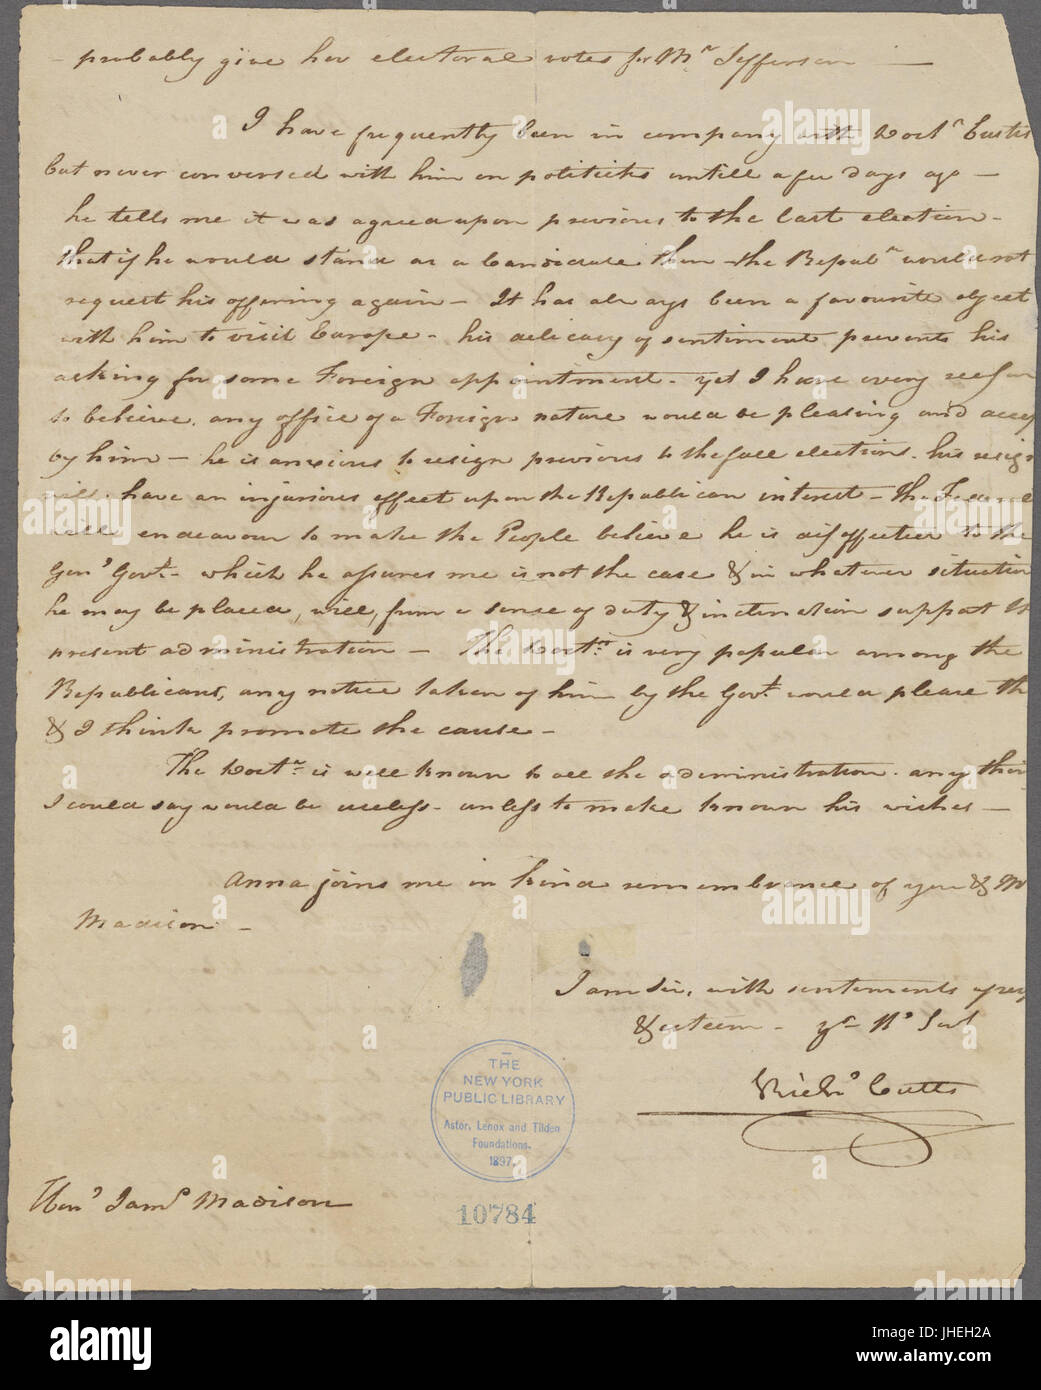 – probably give her electoral votes for Mr. Jefferson —
I have frequently been in company with Doctr Eustis
but never conversed with him on politicks untill a few days ago –
he tells me it was agreed upon previous to the last election –
that if he would stand as a Candidate then – the Republns would not
request his offering again – It has always been a favourite object
with him to visit Europe – his delicacy of sentiment prevents his
asking for some Foreign appointment – yet I have every reason
to believe, any office of a Foreign nature would be pleasing and accep
by him – he is anxious to resign previous to the fall elections. his resig
will have an injurious effect upon the Republican interest – the Federal
will endeavour to make the People believe he is disaffected to the
Genl Govt – which he assures me is not the case & in whatever situation
he may be placed, will, from a sense of duty & inclination support th
present administration – The Doctr is very popular among the
Republicans, any notice taken of him by the Govt would please th
& I think promote the cause –
The Doctr is well known to all the administration. any thin
I could say would be useless – unless to make known his wishes –
Anna joins me in kind remembrance of you & M
Madison –
I am Sir, with sentiments of res
& esteem – yr Ho Sert
Richd Cutts
Honl James Madison
THE
NEW YORK
PUBLIC LIBRARY
Astor, Lenox and Tilden
Foundations.
1897.
10784
alamy
alamy
Image ID: JHEH2A
www.alamy.com